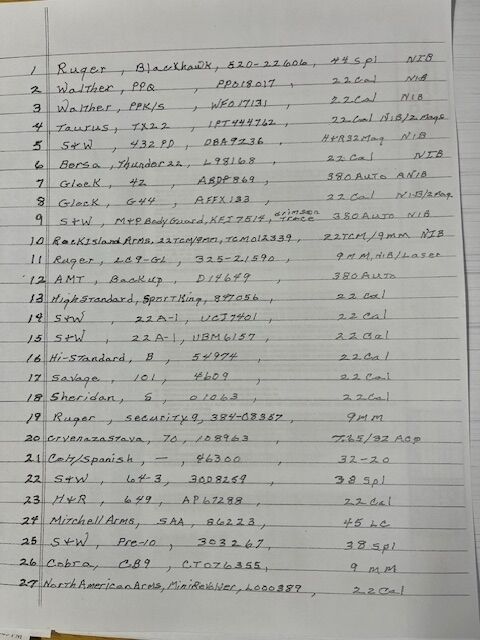 1 Ruger, Blackhawk, 520-22606, 44 Spl NIB
2 Walther, PPQ, PP018017, 22 Cal NIB
3 Walther, PPK/S, WF017131, 22 Cal NIB
4 Taurus, TX22, 1PT444762, 22 Cal NIB/2 Mags
5 S+W, 432 PD, DBA9236, H+R 32 Mag NIB
6 Bersa, Thunder 22, L98168, 22 Cal NIB
7 Glock, 42, ABDP869, 380 Auto ANIB
8 Glock, G44, AFFX133, 22 Cal NIB/2 Mag
9 S+W, M+P Body Guard, KFI7514, Crimson Trace 380 Auto NIB
10 Rock Island Arms, 22TCM/9MM, TCM012339, 22TCM/9mm NIB
11 Ruger, LC9-GL, 325-21590, 9MM, NIB/Laser
12 AMT, Backup, D14649, 380 Auto
13 High Standard, Sport King, 847056, 22 Cal
14 S+W, 22A-1, UCJ7401, 22 Cal
15 S+W, 22A-1, UBM6157, 22 Cal
16 Hi-Standard, B, 54974, 22 Cal
17 Savage, 101, 4609, 22 Cal
18 Sheridan, 5, 01063, 22 Cal
19 Ruger, Security 9, 384-08357, 9MM
20 Crvenazastava, 70, 108963, 7.65/32 ACP
21 Colt/Spanish, —, 46300, 32-20
22 S+W, 64-3, 30D8259, 38 Spl
23 H+R, 649, AP67288, 22 Cal
24 Mitchell Arms, SAA, 86223, 45 LC
25 S+W, Pre-10, 303267, 38 Spl
26 Cobra, CB9, CT076355, 9 MM
27 North American Arms, Mini Revolver, L000389, 22 Cal